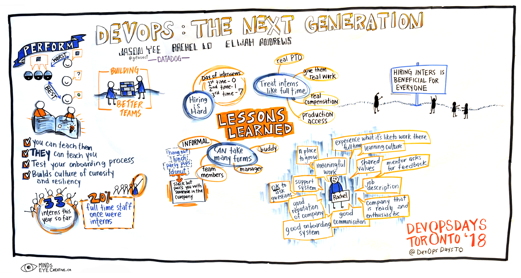 DEVOPS: THE NEXT GENERATION
JASON YEE RACHEL LO ELIJAH ANDREWS
DATADOG
PERFORM
BUILDING
BETTER
TEAMS
you can teach them
THEY can teach you
Test your onboarding process
Builds culture of curiosity
and resiliency
33
interns this
year so far
20%
full time staff
once were
interns
Hiring
is Hard
LESSONS
LEARNED
Treat interns
like full time
real PTO
give them
real work
real
compensation
production
access
INFORMAL
can take
many forms
buddy
manager
team
members
HIRING INTERS IS
BENEFICIAL FOR
EVERYONE
experience what its like to work there
full time
learning culture
a place
to grow
meaningful
work
shared
values
mentor asks
for feedback
support
system
Rachel
job
description
good
reputation
of company
company that
is ready and
enthusiastic
good
communication
good onboarding
system
DEVOPSDAYS
TORONTO '18
@DevOpsDaysTO
MINDS
EYE CREATIVE